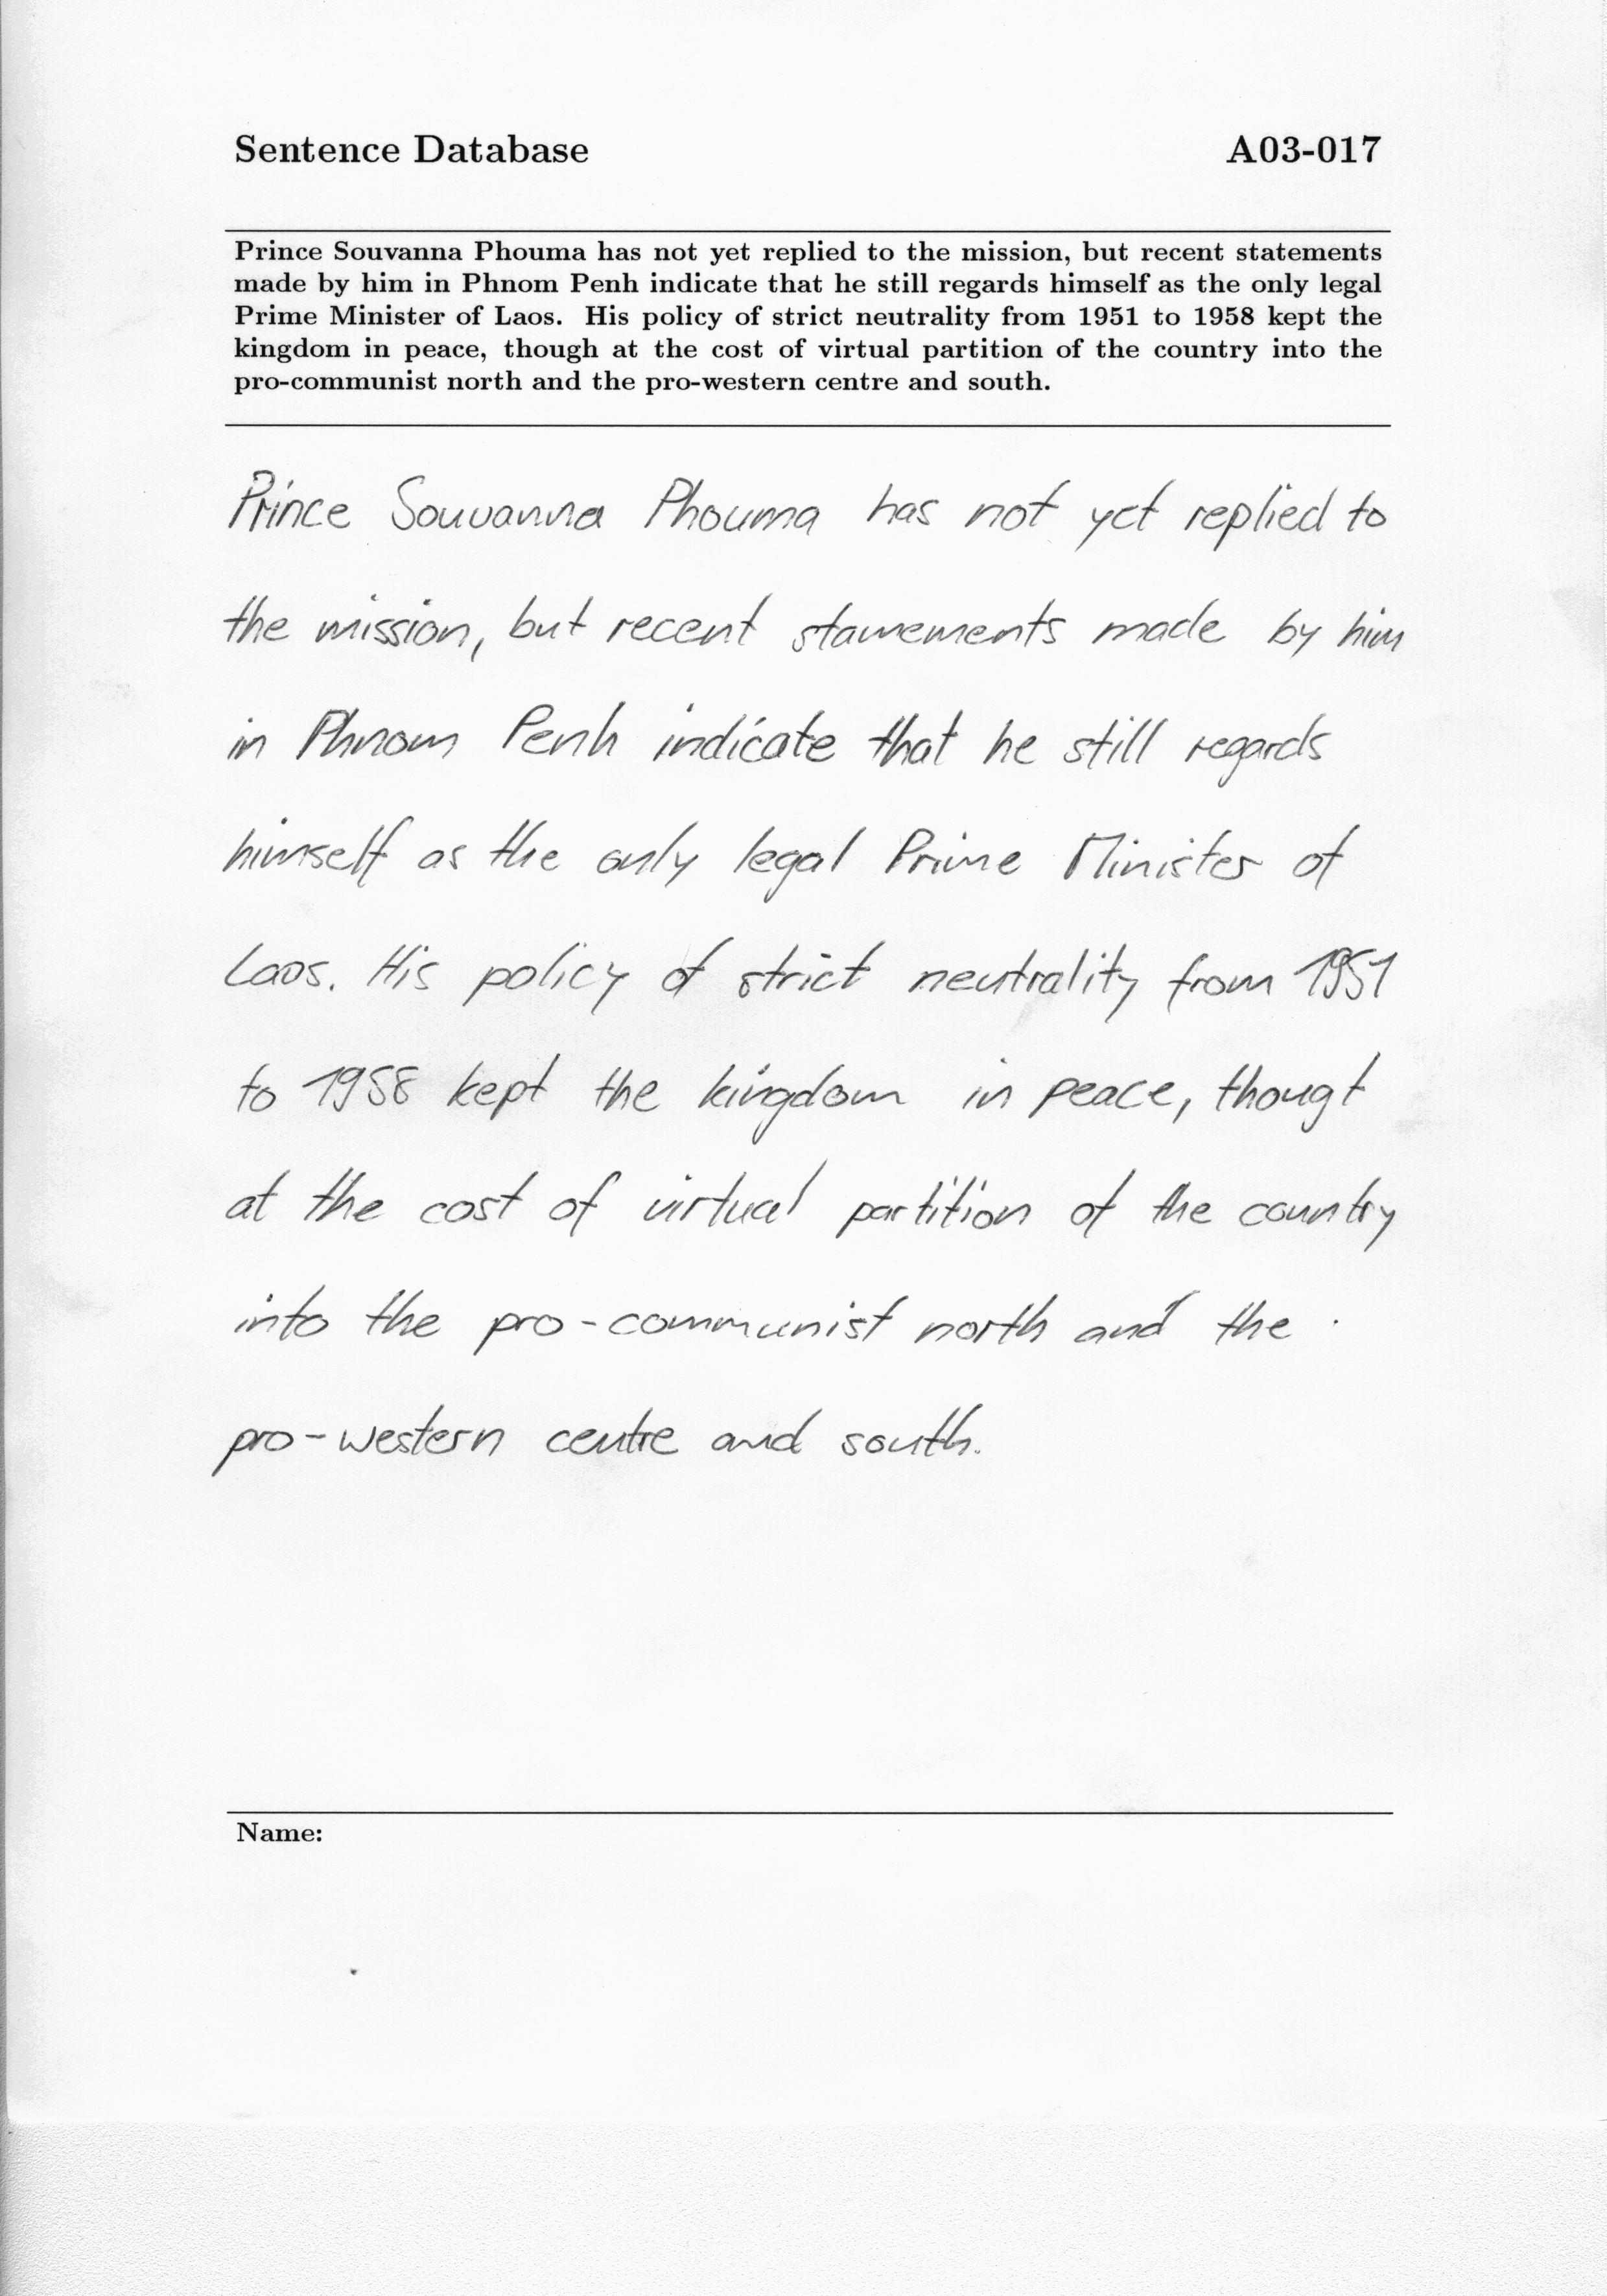 Sentence Database A03-017
Prince Souvanna Phouma has not yet replied to the mission, but recent statements
made by him in Phnom Penh indicate that he still regards himself as the only legal
Prime Minister of Laos. His policy of strict neutrality from 1951 to 1958 kept the
kingdom in peace, though at the cost of virtual partition of the country into the
pro-communist north and the pro-western centre and south.
Prince Souvanna Phouma has not yet replied to
the mission, but recent stamements made by him
in Phnom Penh indicate that he still regards
himself as the only legal Prime Minister of
Laos. His policy of strict neutrality from 1951
to 1958 kept the kingdom in peace, thougt
at the cost of virtual partition of the country
into the pro-communist north and the
pro-western centre and south.
Name: